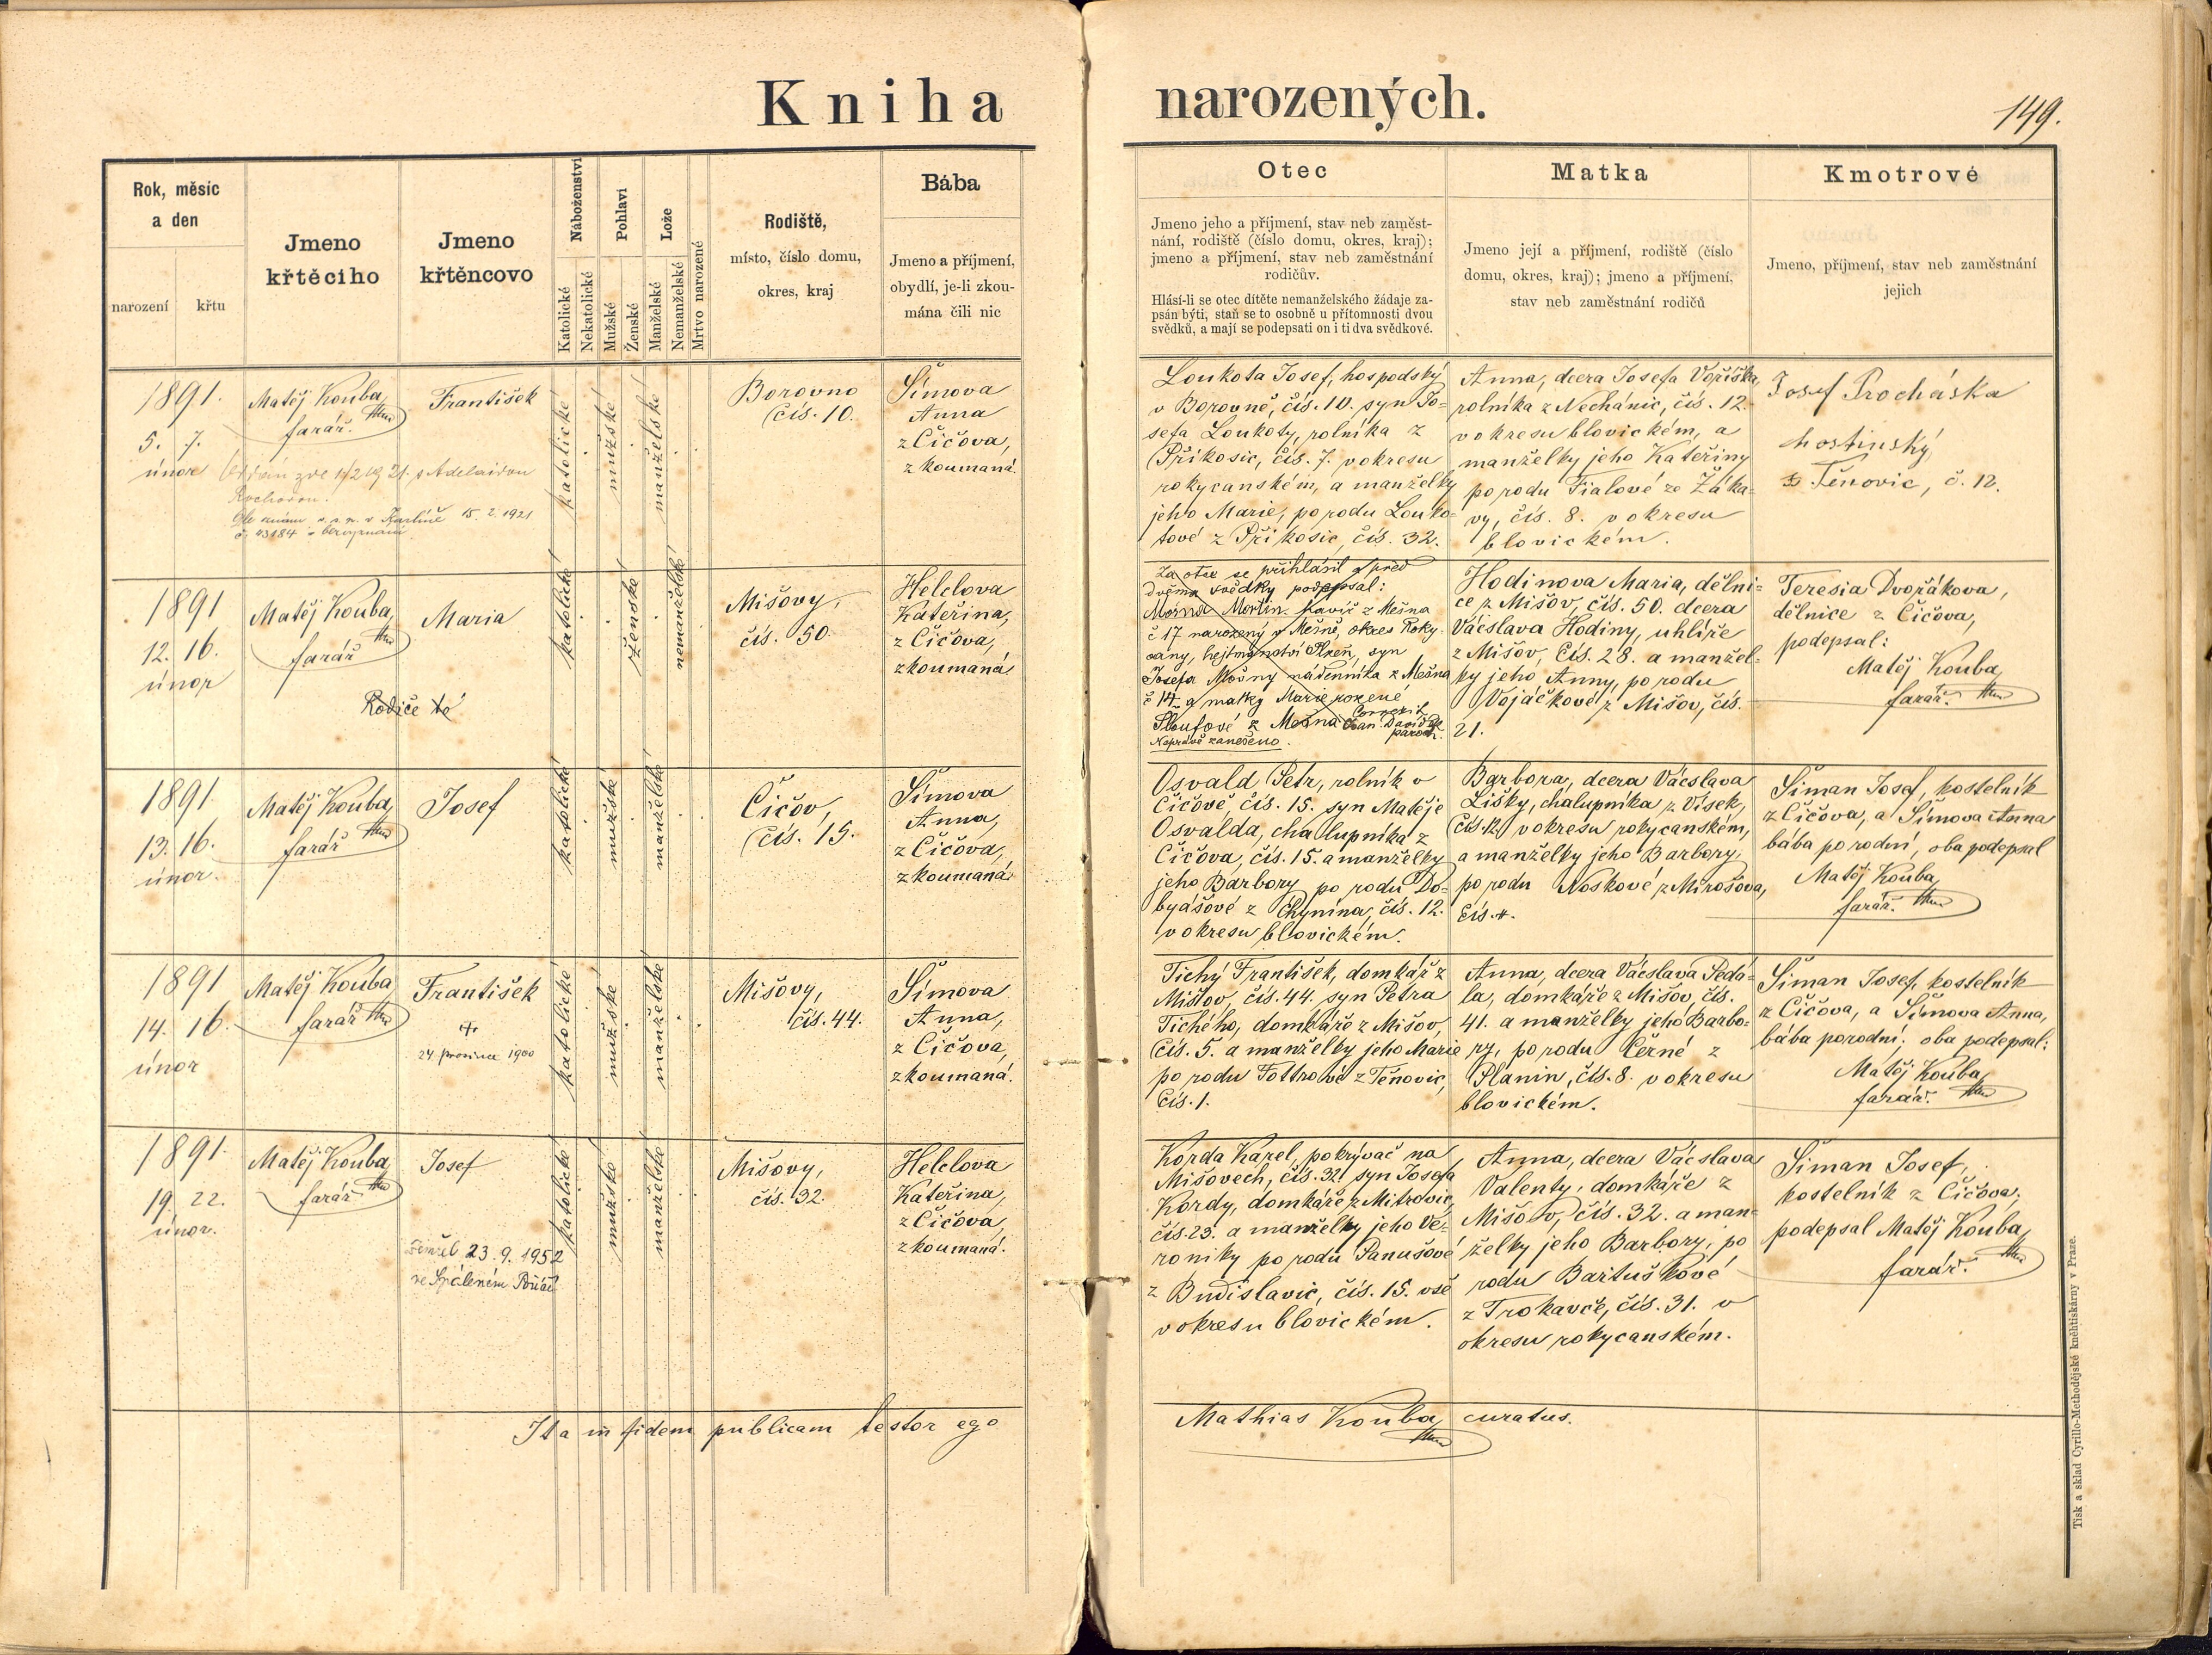 Kniha narozených.
149.
Rok, měsíc
a den
narození
křtu
Jmeno
křtěcího
Jmeno
křtěncovo
Náboženství
Katolické
Nekatolické
Pohlaví
Mužské
Ženské
Lože
Manželské
Nemanželské
Mrtvo narozené
Rodiště,
místo, číslo domu,
okres, kraj
Bába
Jmeno a příjmení,
obydlí, je-li zkou-
mána čili nic
Otec
Jmeno jeho a příjmení, stav neb zaměst-
nání, rodiště (číslo domu, okres, kraj);
jmeno a příjmení, stav neb zaměstnání
rodičův.
Hlásí-li se otec dítěte nemanželského žádaje za-
psán býti, staň se to osobně u přítomnosti dvou
svědků, a mají se podepsati on i ti dva svědkové.
Matka
Jmeno její a příjmení, rodiště (číslo
domu, okres, kraj); jmeno a příjmení,
stav neb zaměstnání rodičů
Kmotrové
Jmeno, příjmení, stav neb zaměstnání
jejich
1891.
5. 7.
únor
Matěj Kouba
farář.
František
15. 2. 1921
katolické
mužské
manželské
Borovno
čís. 10.
Šímova
Anna
z Čičova,
zkoumaná.
Loukota Josef, hospodský
v Borovně, čís. 10. syn Jo-
sefa Loukoty, rolníka z
Příkosic, čís. 7. v okresu
rokycanském, a manželky
jeho Marie, po rodu Louko-
tové z Příkosic, čís. 32.
Anna, dcera Josefa Voříška,
rolníka z Nechánic, čís. 12.
v okresu blovickém, a
manželky jeho Kateřiny
po rodu Fialové ze Žáka-
vy, čís. 8. v okresu
blovickém.
Josef Procháska
hostinský
z Těnovic, č. 12.
1891
12. 16.
únor
Matěj Kouba,
farář
Maria
Rodiče to
katolické
ženské
nemanželské
Mišovy,
čís. 50.
Helclova
Kateřina,
z Čičova,
zkoumaná
Za otce se přihlásil a před
dvěma svědky podepsal:
Mošna Martin havíř z Mešna
č 17 narozený v Mešně, okres Roky-
cany, hejtmanství Plzeň, syn
Josefa Mošny nádenníka z Mešna
č 14 a matky Marie rozené
Ploufové z Mešna
Nepravě zaneseno.
Hodinova Maria, dělni-
ce z Mišov, čís. 50. dcera
Vácslava Hodiny, uhlíře
z Mišov, čís. 28. a manžel-
ky jeho Anny, po rodu
Vojáčkové z Mišov, čís.
21.
Teresia Dvořákova,
dělnice z Čičova,
podepsal:
Matěj Kouba,
farář.
1891
13. 16.
únor.
Matěj Kouba,
farář
Josef
katolické
mužské
manželské
Čičov,
čís. 15.
Šímova
Anna,
z Čičova,
zkoumaná.
Osvald Petr, rolník v
Čičově, čís. 15. syn Matěje
Osvalda, chalupníka z
Čičova, čís. 15. a manželky
jeho Barbory po rodu Do-
byášové z Chynína, čís. 12.
v okresu blovickém.
Barbora, dcera Vácslava
Lišky, chalupníka z Vísek,
čís. 12. v okresu rokycanském,
a manželky jeho Barbory,
po rodu Noskové z Mirošova,
čís. 4.
Šiman Josef, kostelník
z Čičova, a Šímova Anna
bába porodní, oba podepsal
Matěj Kouba,
farář.
1891
14. 16.
únor
Matěj Kouba
farář
František
†
24 prosince 1900
katolické
mužské
manželské
Mišovy,
čís. 44.
Šímova
Anna,
z Čičova,
zkoumaná.
Tichý František, domkář z
Mišov, čís. 44. syn Petra
Tichého, domkáře z Mišov,
čís. 5. a manželky jeho Marie
po rodu Tottrové z Těnovic,
čís. 1.
Anna, dcera Vácslava Pedá-
la, domkáře z Mišov, čís.
41. a manželky jeho Barbo-
ry, po rodu Černé z
Planin, čís. 8. v okresu
blovickém.
Šiman Josef, kostelník
z Čičova, a Šímova Anna,
bába porodní; oba podepsal:
Matěj Kouba,
farář.
1891.
19. 22.
únor.
Matěj Kouba,
farář
Josef
Zemřel 23. 9. 1952
ve Spáleném Poříčí
katolické
mužské
manželské
Mišovy,
čís. 32.
Helclova
Kateřina,
z Čičova,
zkoumaná.
Korda Karel, pokrývač na
Mišovech, čís. 32. syn Josefa
Kordy, domkáře z Mitrovic,
čís. 23. a manželky jeho Ve-
roniky po rodu Panušové
z Budislavic, čís. 15. vše
v okresu blovickém.
Anna, dcera Vácslava
Valenty, domkáře z
Mišov, čís. 32. a man-
želky jeho Barbory, po
rodu Bartuškové
z Trokavče, čís. 31. v
okresu rokycanském.
Šiman Josef,
kostelník z Čičova;
podepsal Matěj Kouba,
farář.
Ita in fidem publicam testor ego
Mathias Kouba, curatus.
Tisk a sklad Cyrillo-Methodějské knihtiskárny v Praze.